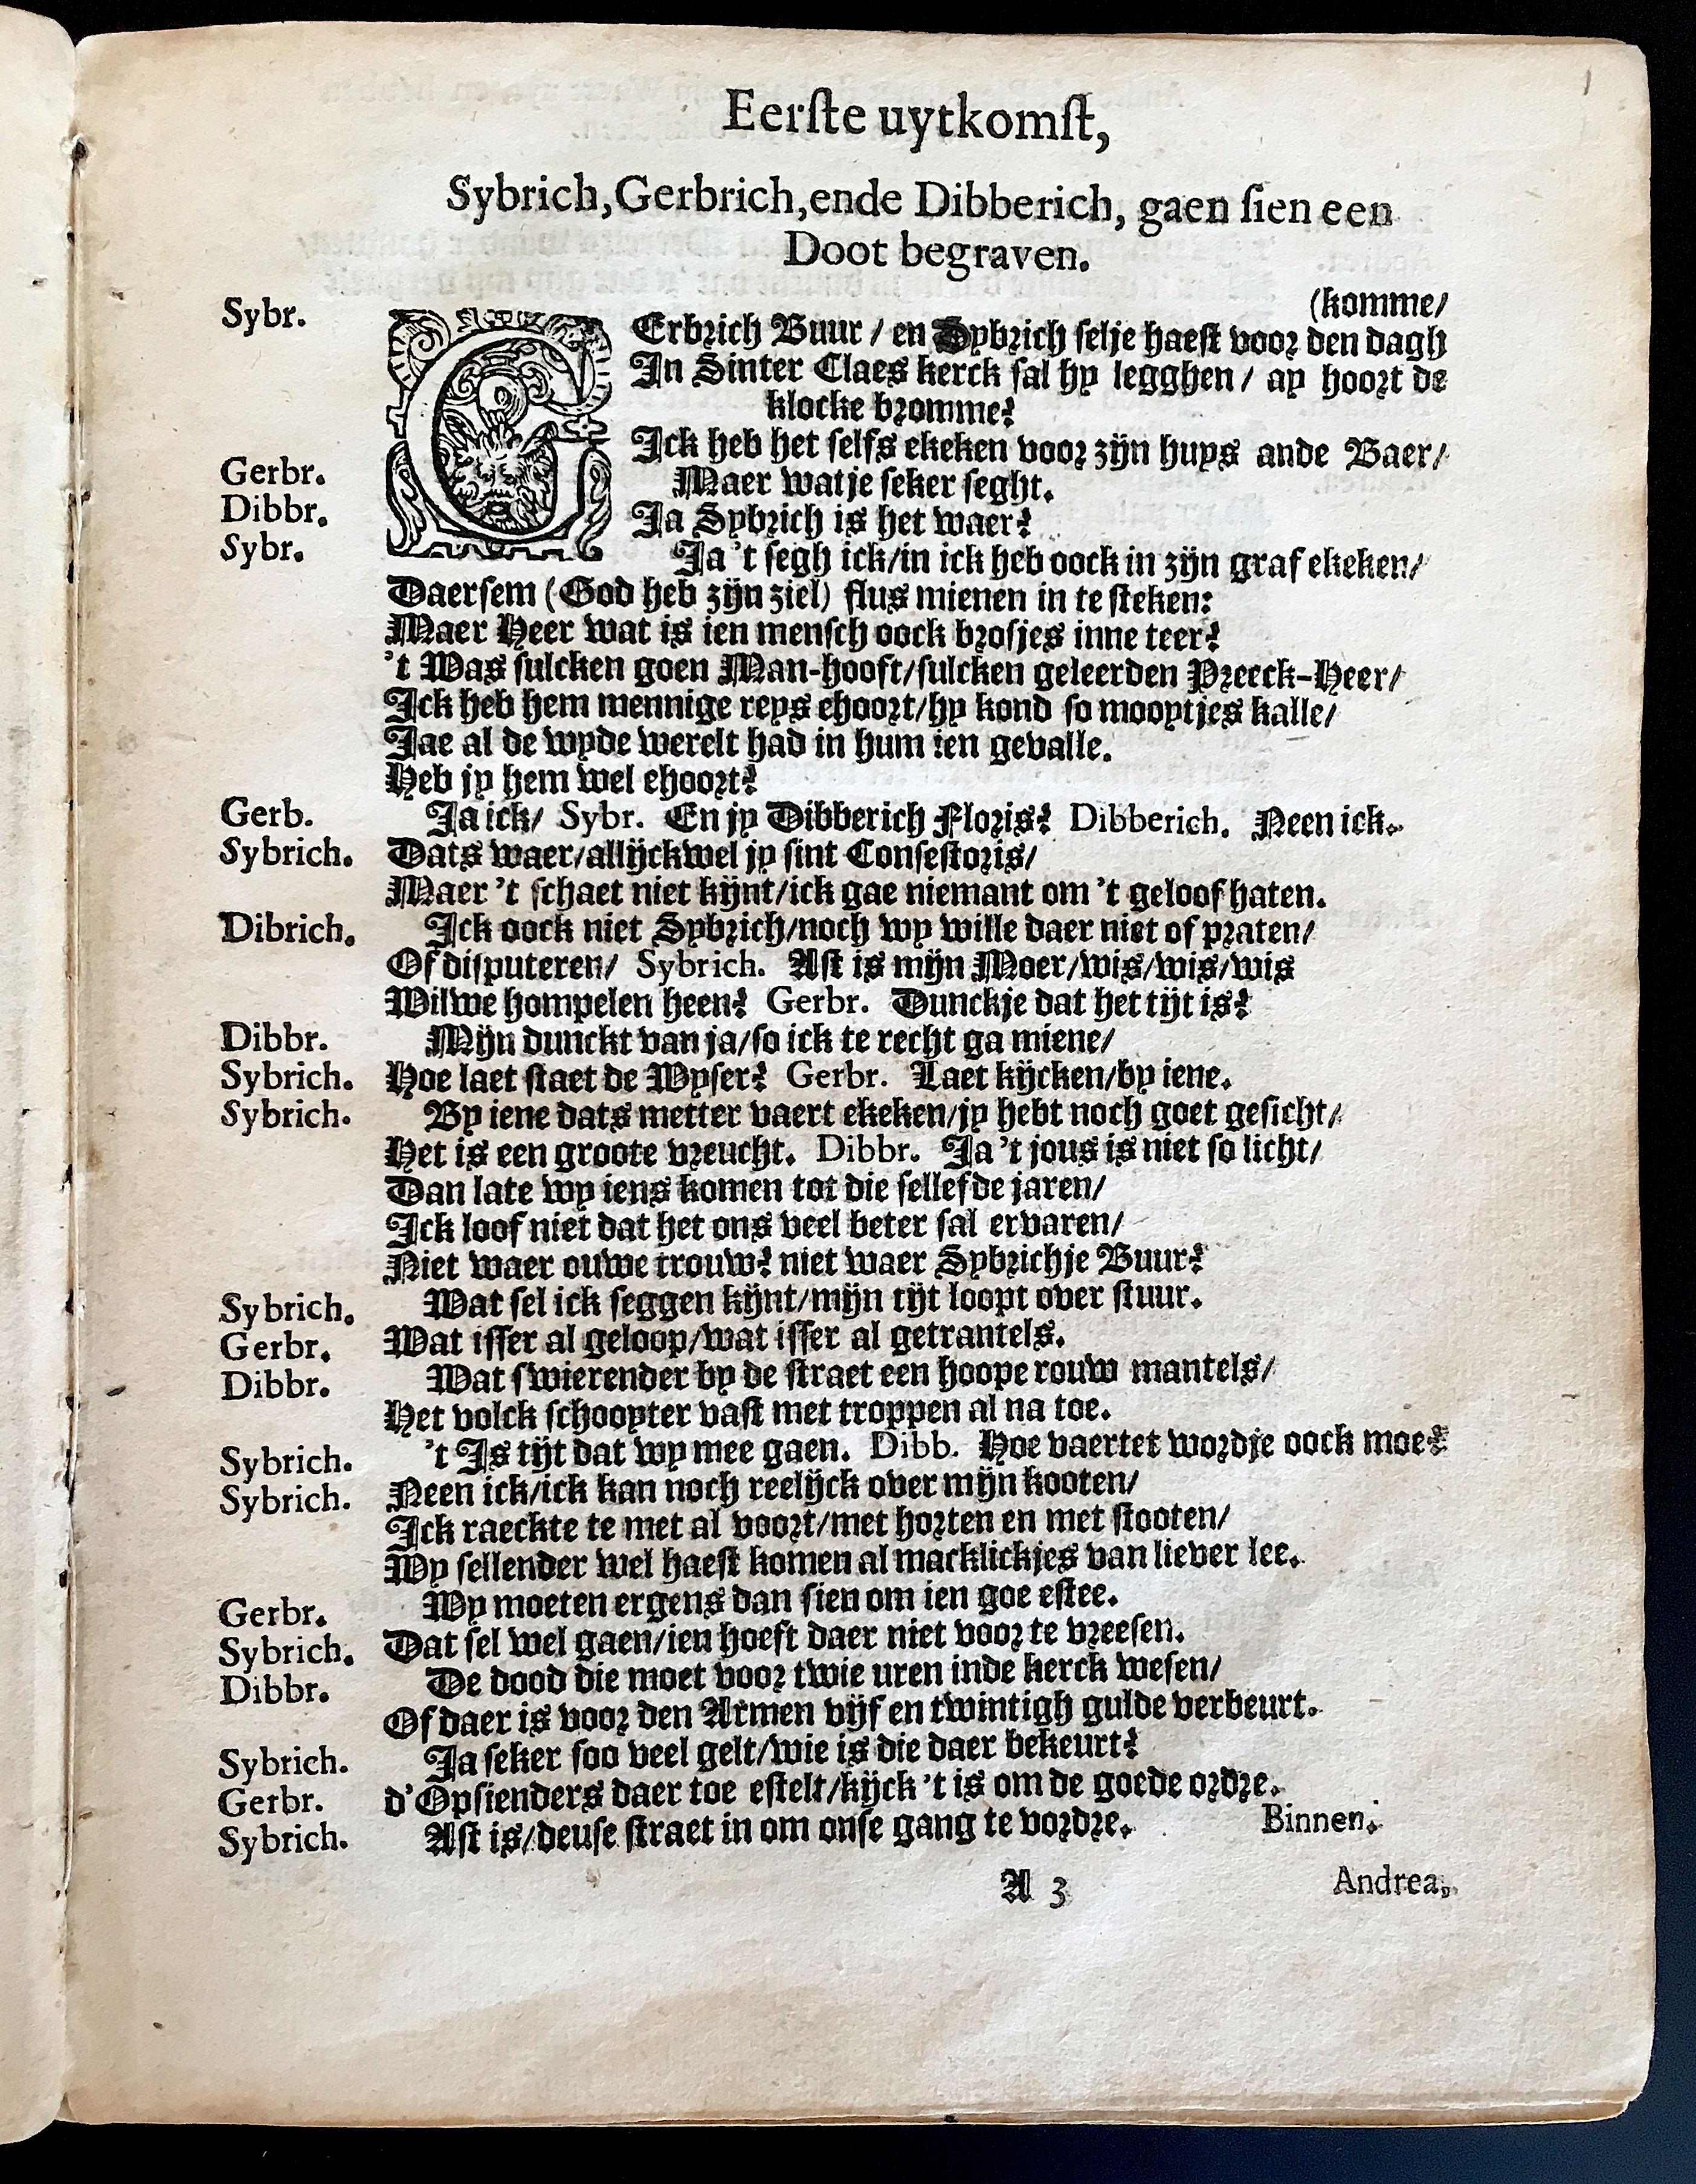 1
Eerſte uytkomſt,
Sybrich, Gerbrich, ende Dibberich, gaen ſien een
Doot begraven.
(komme/
Sybr. GErbrich Buur / en Sybrich ſelje haeſt voor den dagh
In Sinter Claes kerck ſal hy legghen / ay hoort de
klocke bromme?
Ick heb het ſelfs ekeken voor zijn huys ande Baer/
Gerbr. Maer watje ſeker ſeght.
Dibbr. Ja Sybrich is het waer?
Sybr. Ja 't ſegh ick/in ick heb oock in zijn graf ekeken/
Daerſem (God heb zijn ziel) flus mienen in te ſteken:
Maer Heer wat is ien menſch oock broſjes inne teer?
't Was ſulcken goen Man-hooft/ſulcken geleerden Preeck-Heer/
Ick heb hem mennige reys ehoort/hy kond ſo mooytjes kalle/
Jae al de wyde werelt had in hum ien gevalle.
Heb jy hem wel ehoort?
Gerb. Ja ick/ Sybr. En jy Dibberich Floris? Dibberich. Neen ick.
Sybrich. Dats waer/allijckwel jy ſint Conſeſtoris/
Maer 't ſchaet niet kijnt/ick gae niemant om 't geloof haten.
Dibrich. Ick oock niet Sybrich/noch wy wille daer niet of praten/
Of diſputeren/ Sybrich. Aſt is mijn Moer/wis/wis/wis
Wilwe hompelen heen? Gerbr. Dunckje dat het tijt is?
Dibbr. Mijn dunckt van ja/ſo ick te recht ga miene/
Sybrich. Hoe laet ſtaet de Wyſer? Gerbr. Laet kijcken/by iene.
Sybrich. By iene dats metter vaert ekeken/jy hebt noch goet geſicht/
Het is een groote vreucht. Dibbr. Ja 't jous is niet ſo licht/
Dan late wy iens komen tot die ſellefde jaren/
Ick loof niet dat het ons veel beter ſal ervaren/
Niet waer ouwe trouw? niet waer Sybrichje Buur?
Sybrich. Wat ſel ick ſeggen kijnt/mijn tijt loopt over ſtuur.
Gerbr. Wat iſſer al geloop/wat iſſer al getrantels.
Dibbr. Wat ſwierender by de ſtraet een hoope rouw mantels/
Het volck ſchooyter vaſt met troppen al na toe.
Sybrich. 't Is tijt dat wy mee gaen. Dibb. Hoe vaertet wordje oock moe?
Sybrich. Neen ick/ick kan noch reelijck over mijn kooten/
Ick raeckte te met al voort/met horten en met ſtooten/
Wy ſellender wel haeſt komen al macklickjes van liever lee.
Gerbr. Wy moeten ergens dan ſien om ien goe eſtee.
Sybrich. Dat ſel wel gaen/ien hoeft daer niet voor te vreeſen.
Dibbr. De dood die moet voor twie uren inde kerck weſen/
Of daer is voor den Armen vijf en twintigh gulde verbeurt.
Sybrich. Ja ſeker ſoo veel gelt/wie is die daer bekeurt?
Gerbr. d'Opſienders daer toe eſtelt/kijck 't is om de goede ordre.
Sybrich. Aſt is/deuſe ſtraet in om onſe gang te vordre. Binnen.
A 3 Andrea,